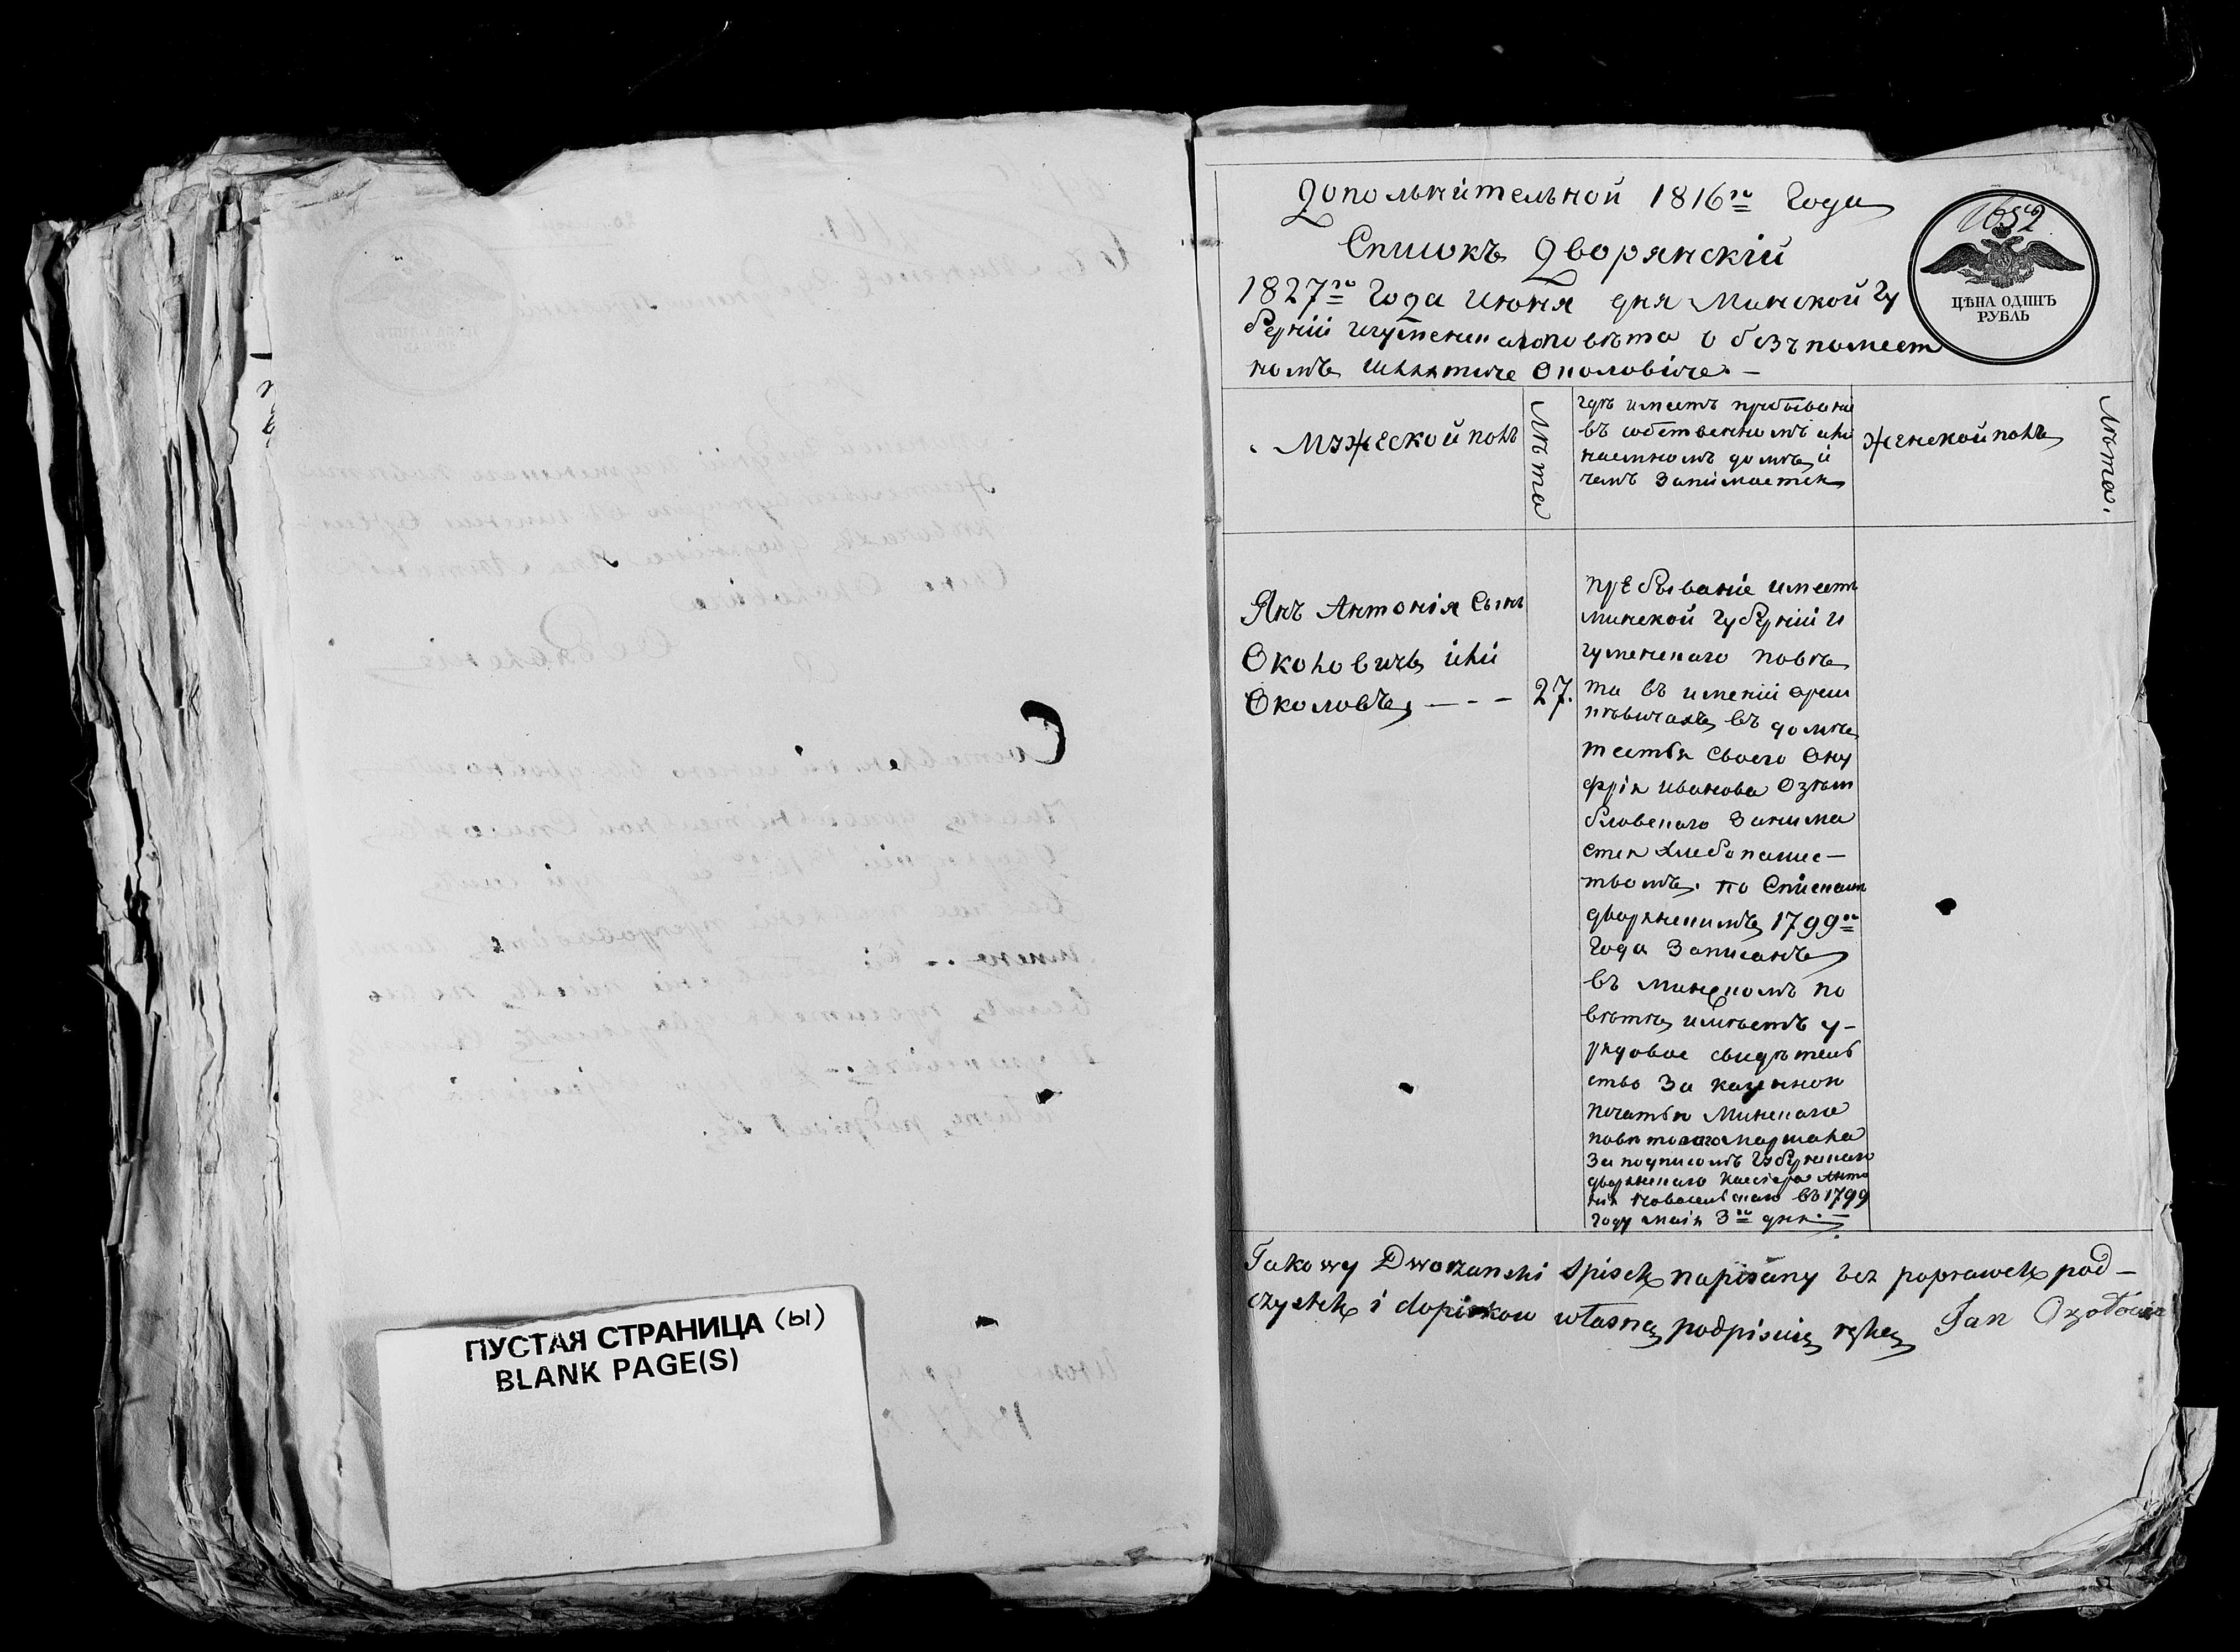 Дополнительной 1816го Года
Списокъ Дворянскій
1827го Года июня дня Минской Гу
берніи игуменскаго повѣта о безъпомест
номъ шляхтиче Околовиче. —
1652
ЦѢНА ОДИНЪ
РУБЛЬ
Мужеской полъ
Лѣта
гдѣ имеетъ пребываніе
въ собственномъ или
наемномъ домѣ и
чемъ Занимается
женской полъ
Лѣта.
Янъ Антонія Сынъ
Околовичъ или
Околовъ, — - - 27.
пребываніе имеетъ
минской губерніи и
гуменскаго повѣ
та въ именіи
въ домѣ
тестя своего Ону
фрія иванова
Занима
ется хлебопашес—
твомъ. по Спискамъ
дворянскимъ 1799го
Года Записанъ
въ минскомъ по
вѣтѣ, имѣетъ у-
рядовое свидѣтель
ство За казенною
печатью Минскаго
повѣтоваго маршала
За подписомъ Губернскаго
дворянскаго Анто
нія въ 1799
году маія 3го дня. —
Takowy Dworzanski Spisek napisany bez poprawek pod—
czystek i dopiskow własną podpisuię ręką Jan
ПУСТАЯ СТРАНИЦА (Ы)
BLANK PAGE(S)